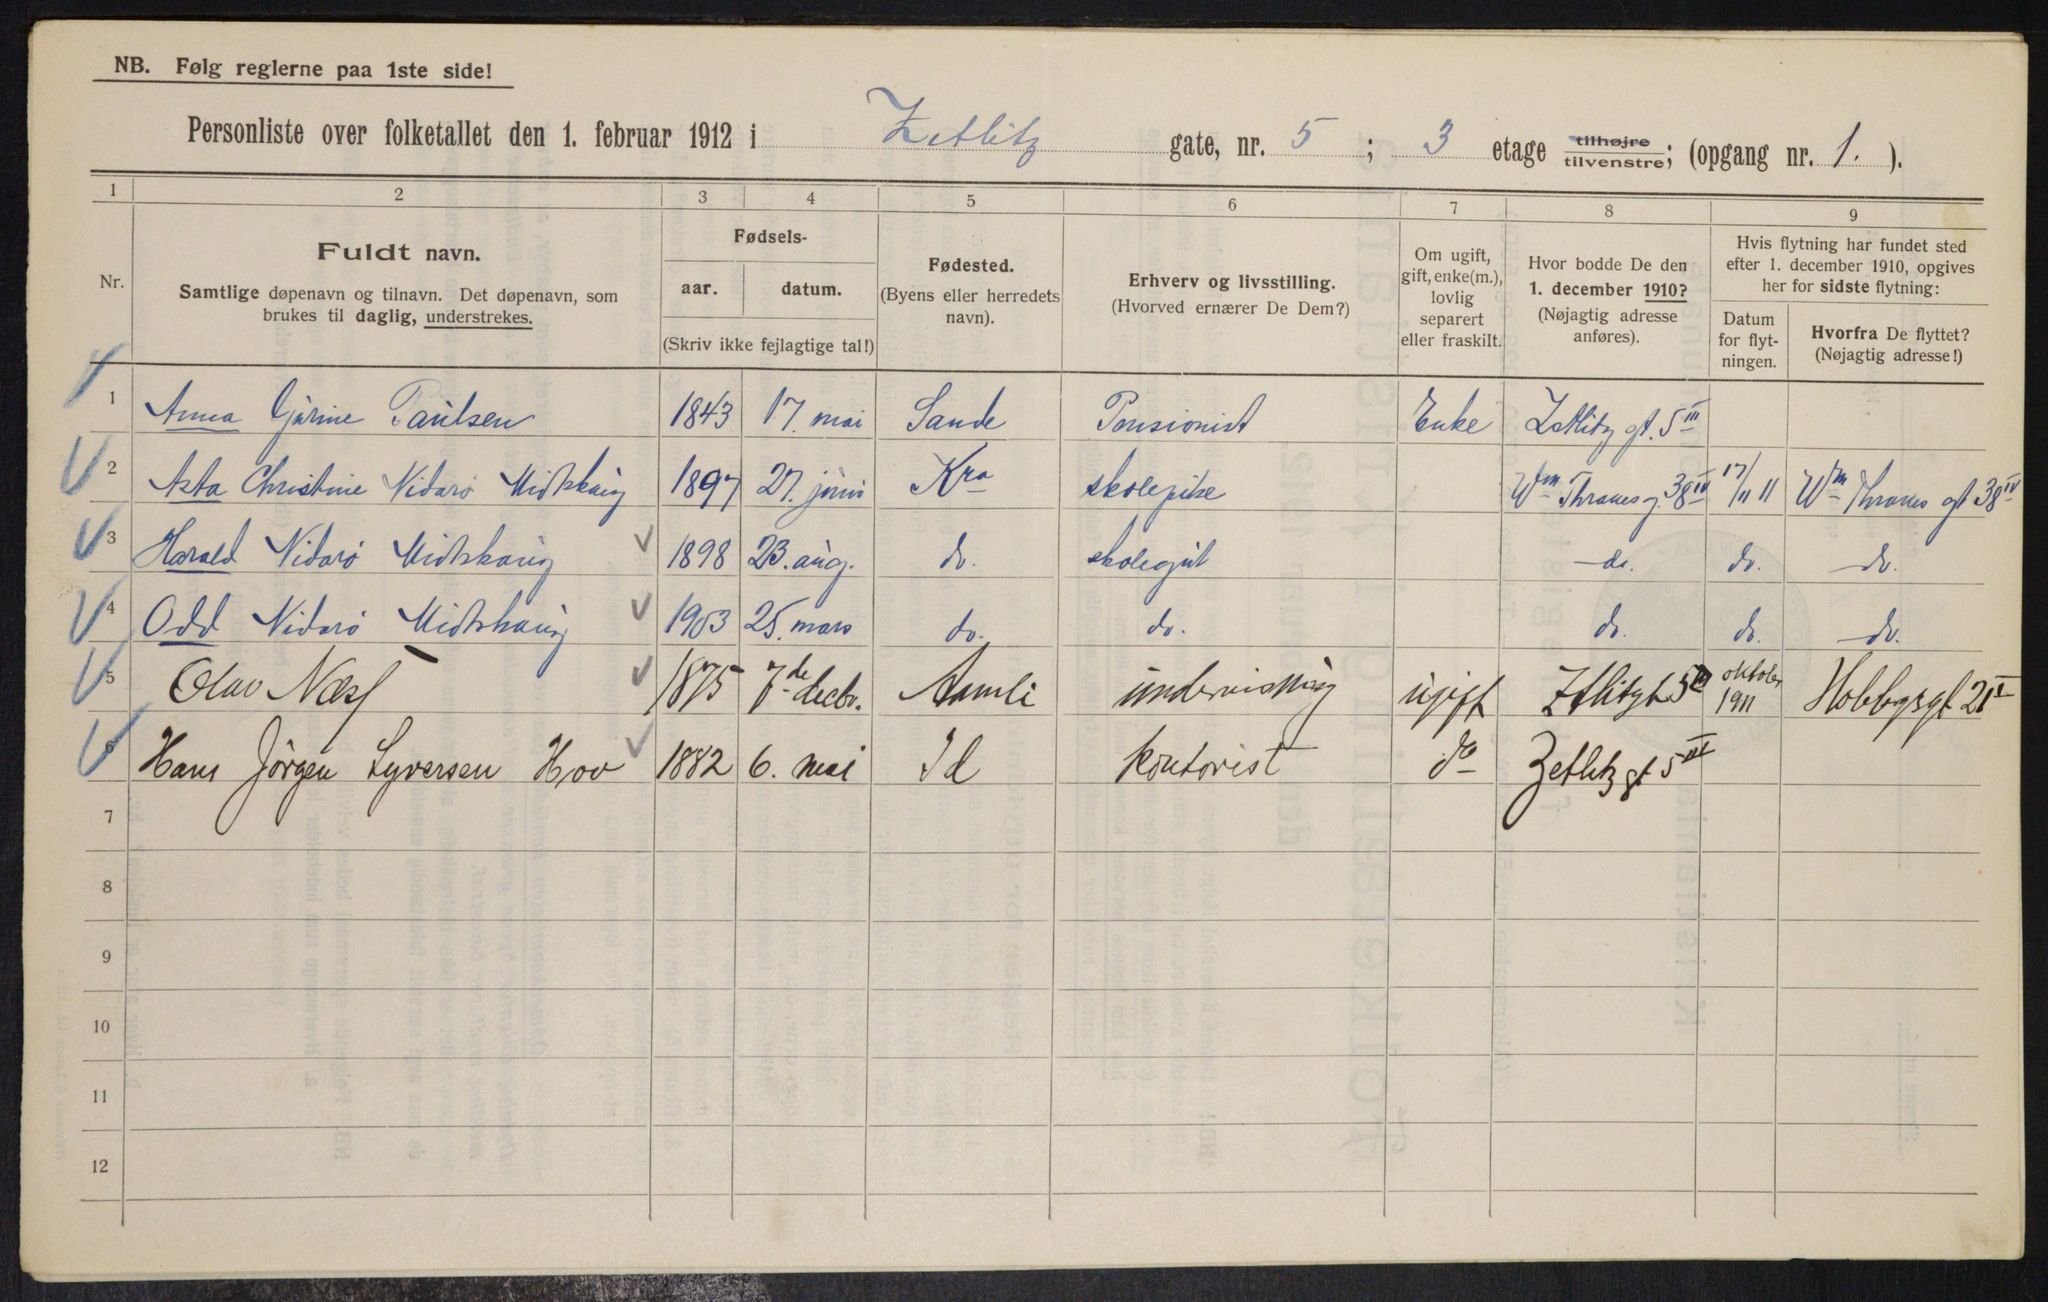 NB. Følg reglerne paa 1ste side!
Personliste over folketallet den 1. februar 1912 i Zetlitz gate, nr. 5 ; 3 etage tilhøjre tilvenstre; (opgang nr. 1. ).
1 2 3 4 5 6 7 8 9
Nr.
Fuldt navn.
Samtlige døpenavn og tilnavn. Det døpenavn, som
brukes til daglig, understrekes.
Fødsels-
aar. datum.
(Skriv ikke fejlagtige tal!)
Fødested.
(Byens eller herredets
navn).
Erhverv og livsstilling.
(Hvorved ernærer De Dem?)
Om ugift,
gift, enke(m.),
lovlig
separert
eller fraskilt.
Hvor bodde De den
1. december 1910?
(Nøjagtig adresse
anføres).
Hvis flytning har fundet sted
efter 1. december 1910, opgives
her for sidste flytning:
Datum
for flyt-
ningen.
Hvorfra De flyttet?
(Nøjagtig adresse!)
1 Anna Gjørine Paulsen 1843 17. mai Sande Pensionist Enke Zetlitz gt. 5 III
2 Asta Christine Nidarø Midtskaug 1897 27. juni Kra skolepike Wm Thranes g. 38 IV 17/11 11 Wm Thranes gt 38 IV
3 Harald Nidarø Midtskaug 1898 23. aug. do. skolegut do. do. do.
4 Odd Nidarø Midtskaug 1903 25. mars do. do. do. do. do.
5 Olav Næs 1875 7de decbr. Aamli undervisning ugift Zetlitzgt 5 III oktober 1911 Hobbysgt 21 I
6 Hans Jörgen Syversen Hov 1882 6. mai Id kontorist do Zetlitz gt 5 III
7
8
9
10
11
12